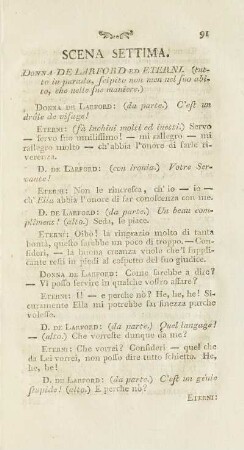 91
SCENA SETTIMA.
DONNA DE LARFORD ED ETERNI. (tut-
to in parata, scipito non men nel suo abi-
to, che nelle sue maniere.)
DONNA DE LARFORD: (da parte.) C'est un
drôle de visage!
ETERNI: (fà Inchini molti ed inetti.) Servo
— Servo suo umilissimo! — mi rallegro — mi
rallegro molto — ch'abbia l'onore di farle ri-
verenza.
D. DE LARFORD: (con ironia.) Votre Ser-
vante!
ETERNI: Non le rincresca, ch'io — io —
ch'Ella abbia l'onore di far conoscenza con me.
D. DE LARFORD: (da parte.) Un beau com-
pliment! (alto.) Seda, le piace.
ETERNI: Oibò! la ringrazio molto di tanta
bontà, questo sarebbe un poco di troppo. — Consi-
deri, — la buona creanza vuole che l'suppli-
cante resti in piedi al cospetto del suo giudice.
DONNA DE LARFORD: Come sarebbe a dire?
— Vi posso servire in qualche vostro affare?
ETERNI: U — e perche nò? He, he, he! Si-
curamente Ella mi potrebbe far finezza purchè
volesse.
D. DE LARFORD: (da parte.) Quel langage!
— (alto.) Che vorreste dunque da me?
ETERNI: Che vorrei? Consideri — quel che
da Lei vorrei, non posso dire tutto schietto. He,
he, he!
D. DE LARFORD: (da parte.) C'est un génie
stupide! (alto.) E perche nò?
ETERNI: